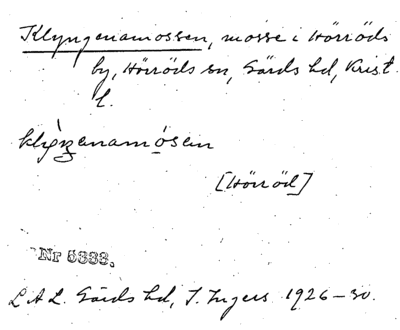 Klyngenamossen, mosse i Hörröds
by, Hörröds sn, Gärds hd, Krist.
l.
klyŋenamosen
[Hörröd]
Nr 5333.
L A L. Gärds hd, I. Ingers 1926-30.